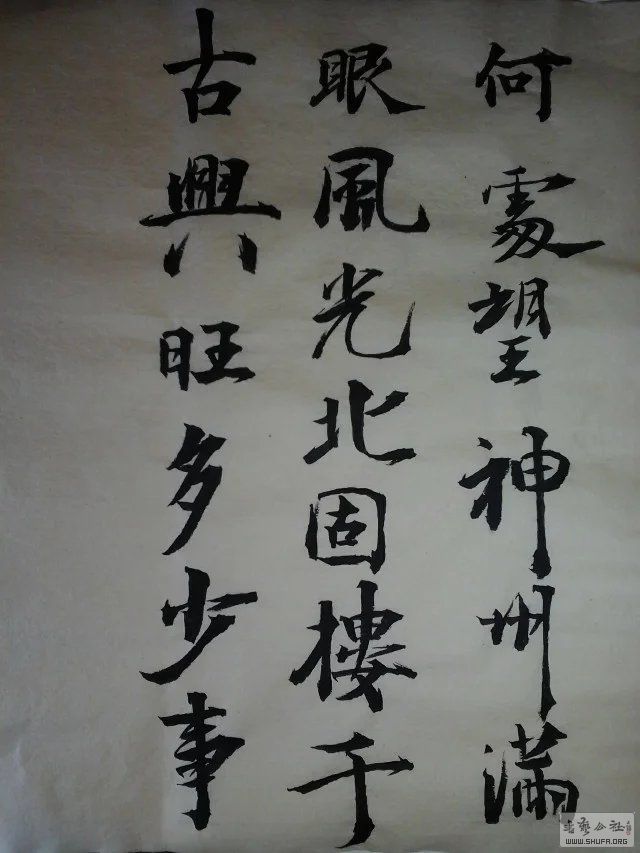 何處望神州滿
眼風光北固樓千
古興旺多少事
書藝公社
WWW.SHUFA.ORG